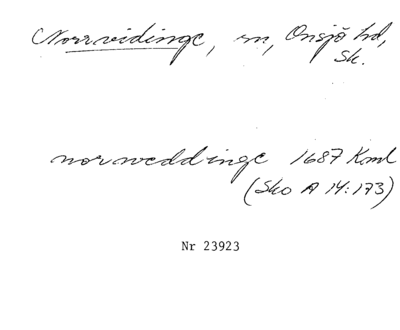 Norrvidinge, sn, Onsjö hd,
Sk.
norweddinge 1687 Kml
(Sko A 14:173)
Nr 23923